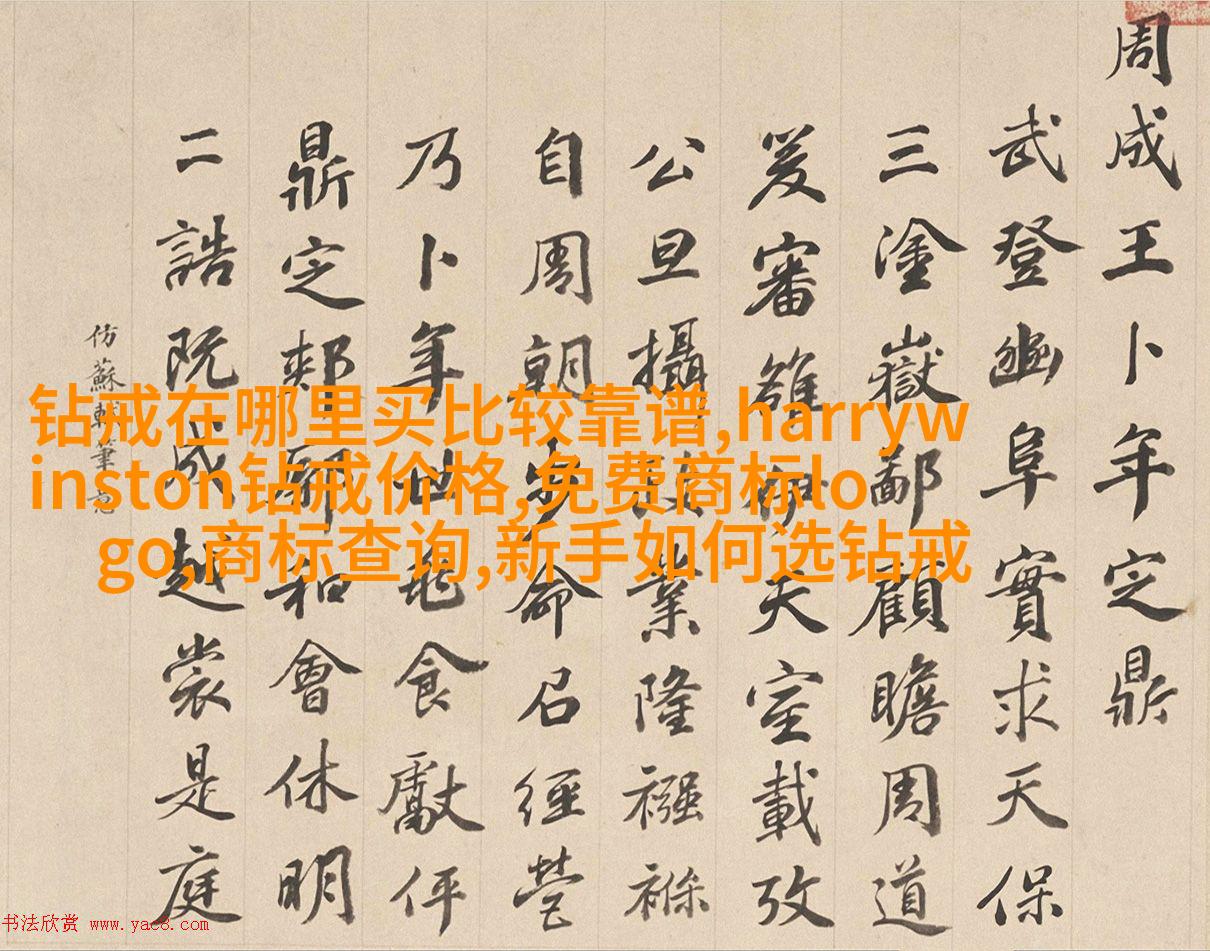 周成王卜年定鼎
武登豳阜實求天保
三塗嶽鄙顧瞻周道
爰審雒伊天室載攷
公旦攝業隆襁褓
自周朝步命召經營
乃卜年世龜食獻伻
鼎定郟鄏和會休明
二誥既成越裳是庭
仿蘇軾筆意
钻戒在哪里买比较靠谱,harryw
inston钻戒价格,免费商标lo
go,商标查询,新手如何选钻戒
书法欣赏 www.yac8.com